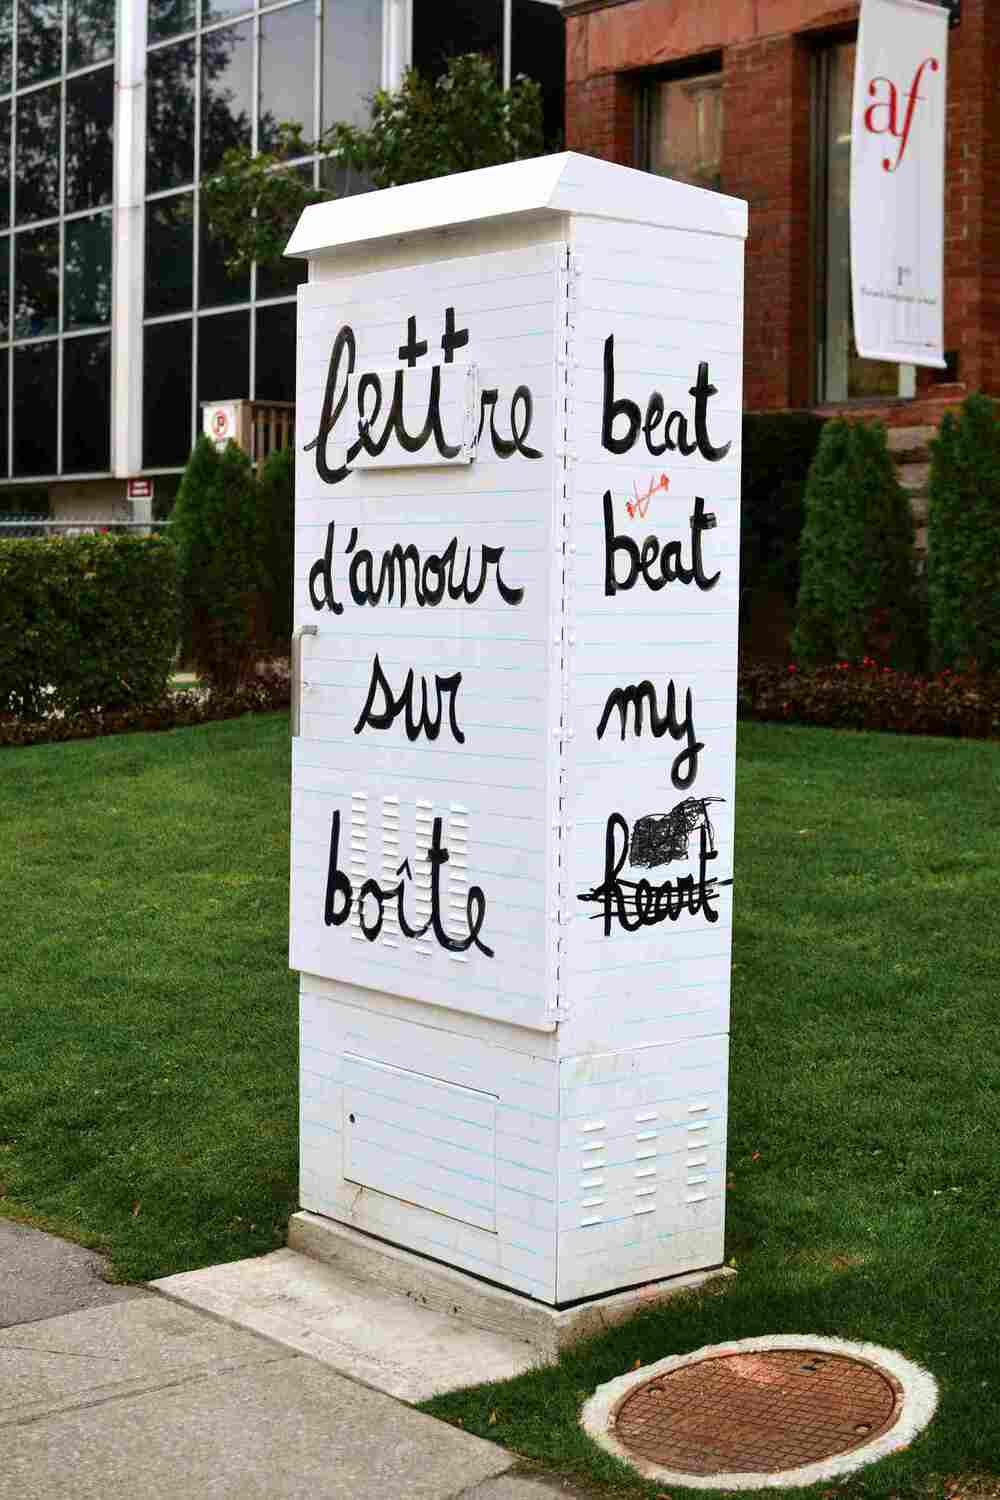 lettre
d'amour
sur
boîte
beat
beat
my
heart
af